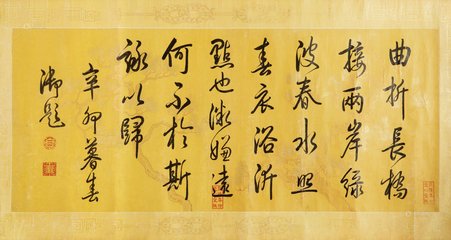 曲折長橋
接兩岸綠
波春水照
春衣浴沂
點也微嫌遠
何不於斯
詠以歸
辛卯暮春
御題